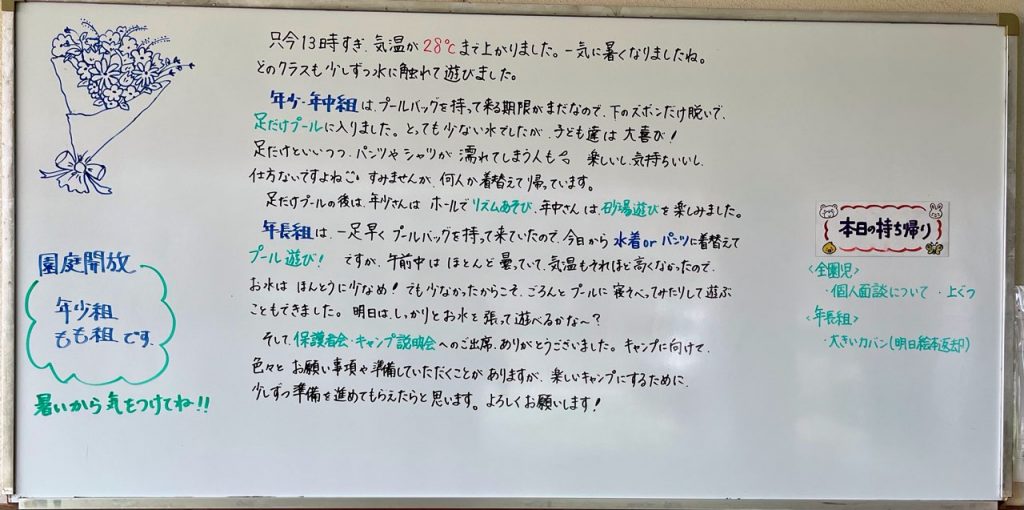 只今13時すぎ、気温が28℃まで上がりました。一気に暑くなりましたね。
どのクラスも少しずつ水に触れて遊びました。
年少・年中組は、プールバッグを持って来る期限がまだなので、下のズボンだけ脱いで、
足だけプールに入りました。とっても少ない水でしたが、子ども達は大喜び！
足だけといいつつ、パンツやシャツが濡れてしまう人も 楽しいし、気持ちいいし、
仕方ないですよね すみませんが、何人か着替えて帰っています。
足だけプールの後は、年少さんは ホールでリズムあそび、年中さんは、砂場遊びを楽しみました。
年長組は、一足早くプールバッグを持って来ていたので、今日から水着orパンツに着替えて
プール遊び！ ですが、午前中はほとんど曇っていて、気温もそれほど高くなかったので、
お水は ほんとうに少なめ！でも少なかったからこそ、ごろんとプールに寝そべってみたりして遊ぶ
こともできました。明日は、しっかりとお水を張って遊べるかな～？
そして、保護者会・キャンプ説明会へのご出席、ありがとうございました。キャンプに向けて、
色々と お願い事項や準備していただくことがありますが、楽しいキャンプにするために、
少しずつ準備を進めてもらえたらと思います。よろしくお願いします！
園庭開放
年少組
もも組です。
暑いから気をつけてね!!
本日の持ち帰り
〈全園児〉
・個人面談について ・上ぐつ
〈年長組〉
・大きいカバン(明日絵本返却)